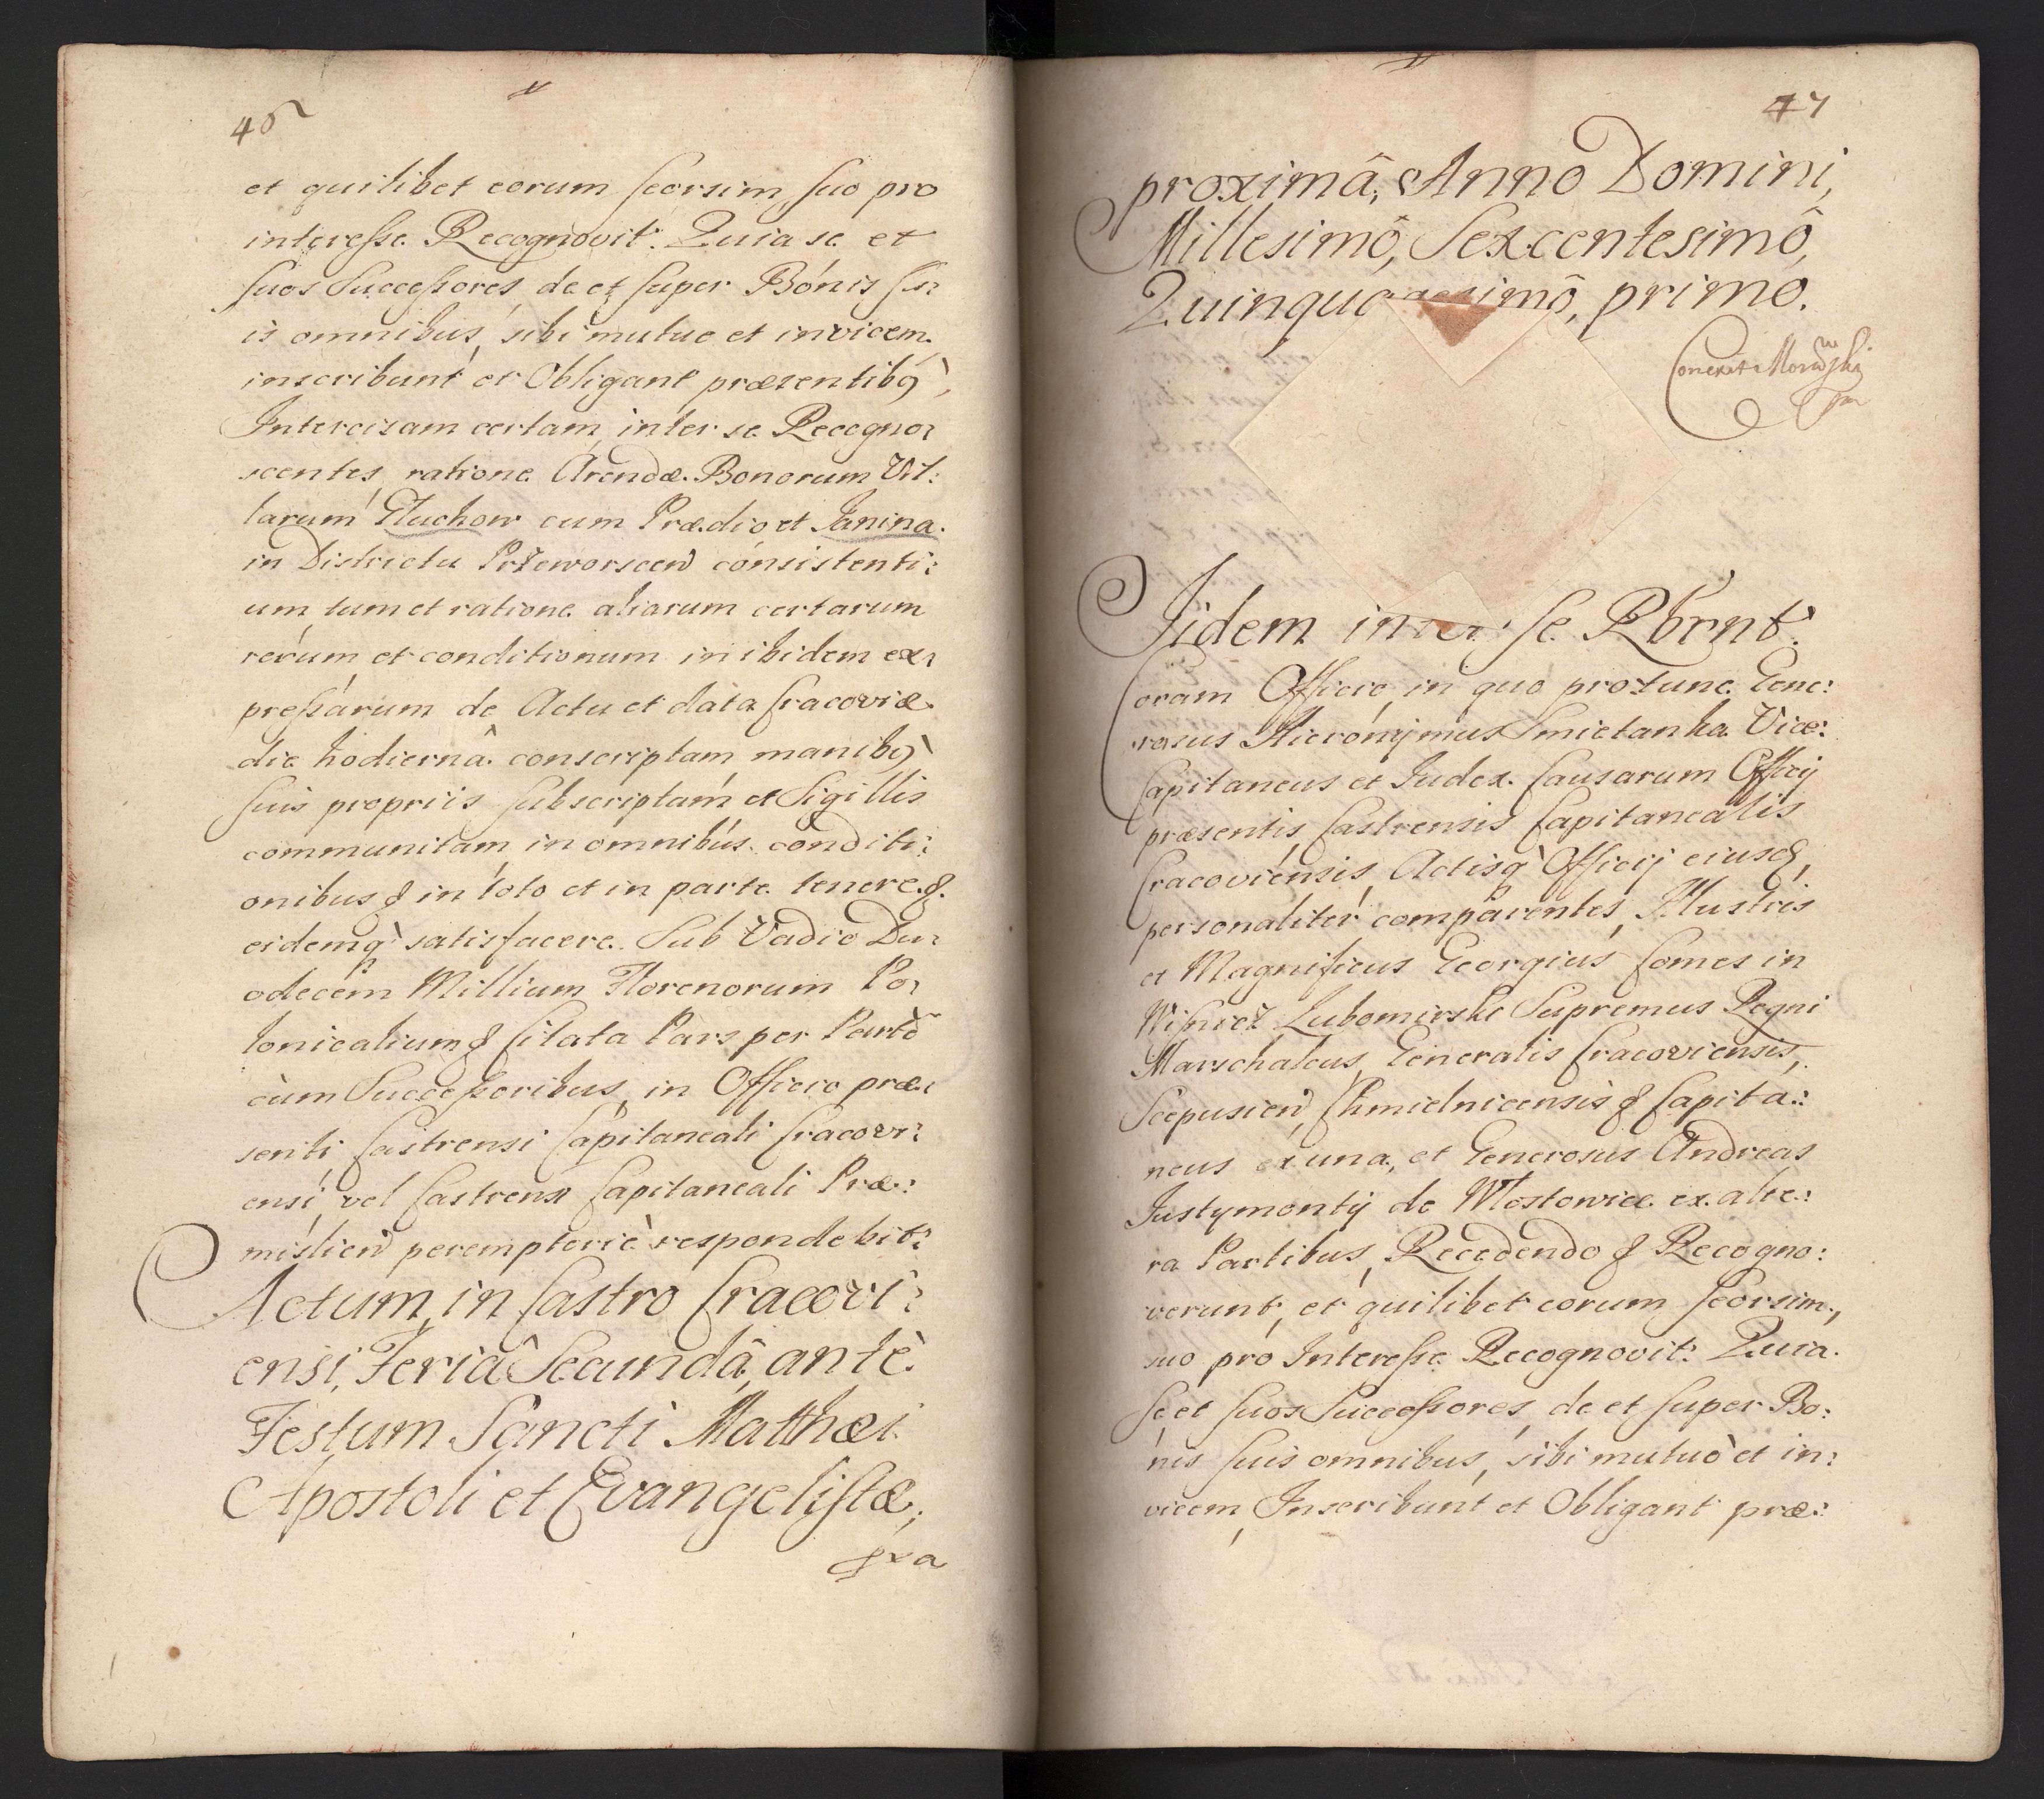 46
et quilibet eorum seorsim, suo pro
interesse Recognovit. Quia se et
suos Successores de et super Bonis su:
is omnibus, sibi mutuo et invicem
inscribunt et Obligant præsentibq,
Intercizam certam inter se Recogno:
scentes, ratione Arendæ Bonorum Vil:
larum Głuchow cum Prædio et Janina
in Districtu Przeworscen consistenti:
um, tum et ratione aliarum certarum
rerum et conditionum in ibidem ex:
pressarum de Actu et data Cracoviæ
die hodiernâ conscriptam manibq
suis propriis subscriptam et Sigillis
communitam, in omnibus conditi:
onibus & in toto et in parte tenere &
eidemq satisfacere. Sub Vadio Du:
odecem Millium Florenorum Po:
lonicalium & Citata Pars per Partē
cùm Successoribus, in Officio præ:
senti Castrensi Capitaneali Cracovi:
ensi, vel Castrensi Capitaneali Præ:
mislien peremptoriè respondebit:
Actum, in Castro Cracovi:
ensi, Feriâ Secundâ, antè
Festum Sancti Matthæi
Apostoli et Evangelistæ,
pxa
47
proximâ, Anno Domini,
Millesimô, Sexcentesimô,
Quinqua imô, primo.
Iidem inter se Rbrnt.
Coram Officio, in quo protunc Gene:
rosus Hieronymus Smietanka Vice:
Capitaneus et Iudex Causarum Officij
præsentis, Castrensis Capitanealis
Cracoviensis, Actisq Officij eiusq,
personaliter comparentes, Illustris
et Magnificus Georgius Comes in
Wisnicz Lubomirski Supremus Regni
Marschalcus, Generalis Cracoviensis,
Scepusien, Chmielnicensis & Capita:
neus ex una, et Generosus Andreas
Justymontij de Włostowice ex alte:
ra Partibus, Recedendo & Recogno:
verunt, et quilibet eorum seorsim,
suo pro Interesse Recognovit: Quia
se et suos Successores, de et super Bo:
nis suis omnibus, sibi mutuò et in:
vicem, Inscribunt et Obligant præ: